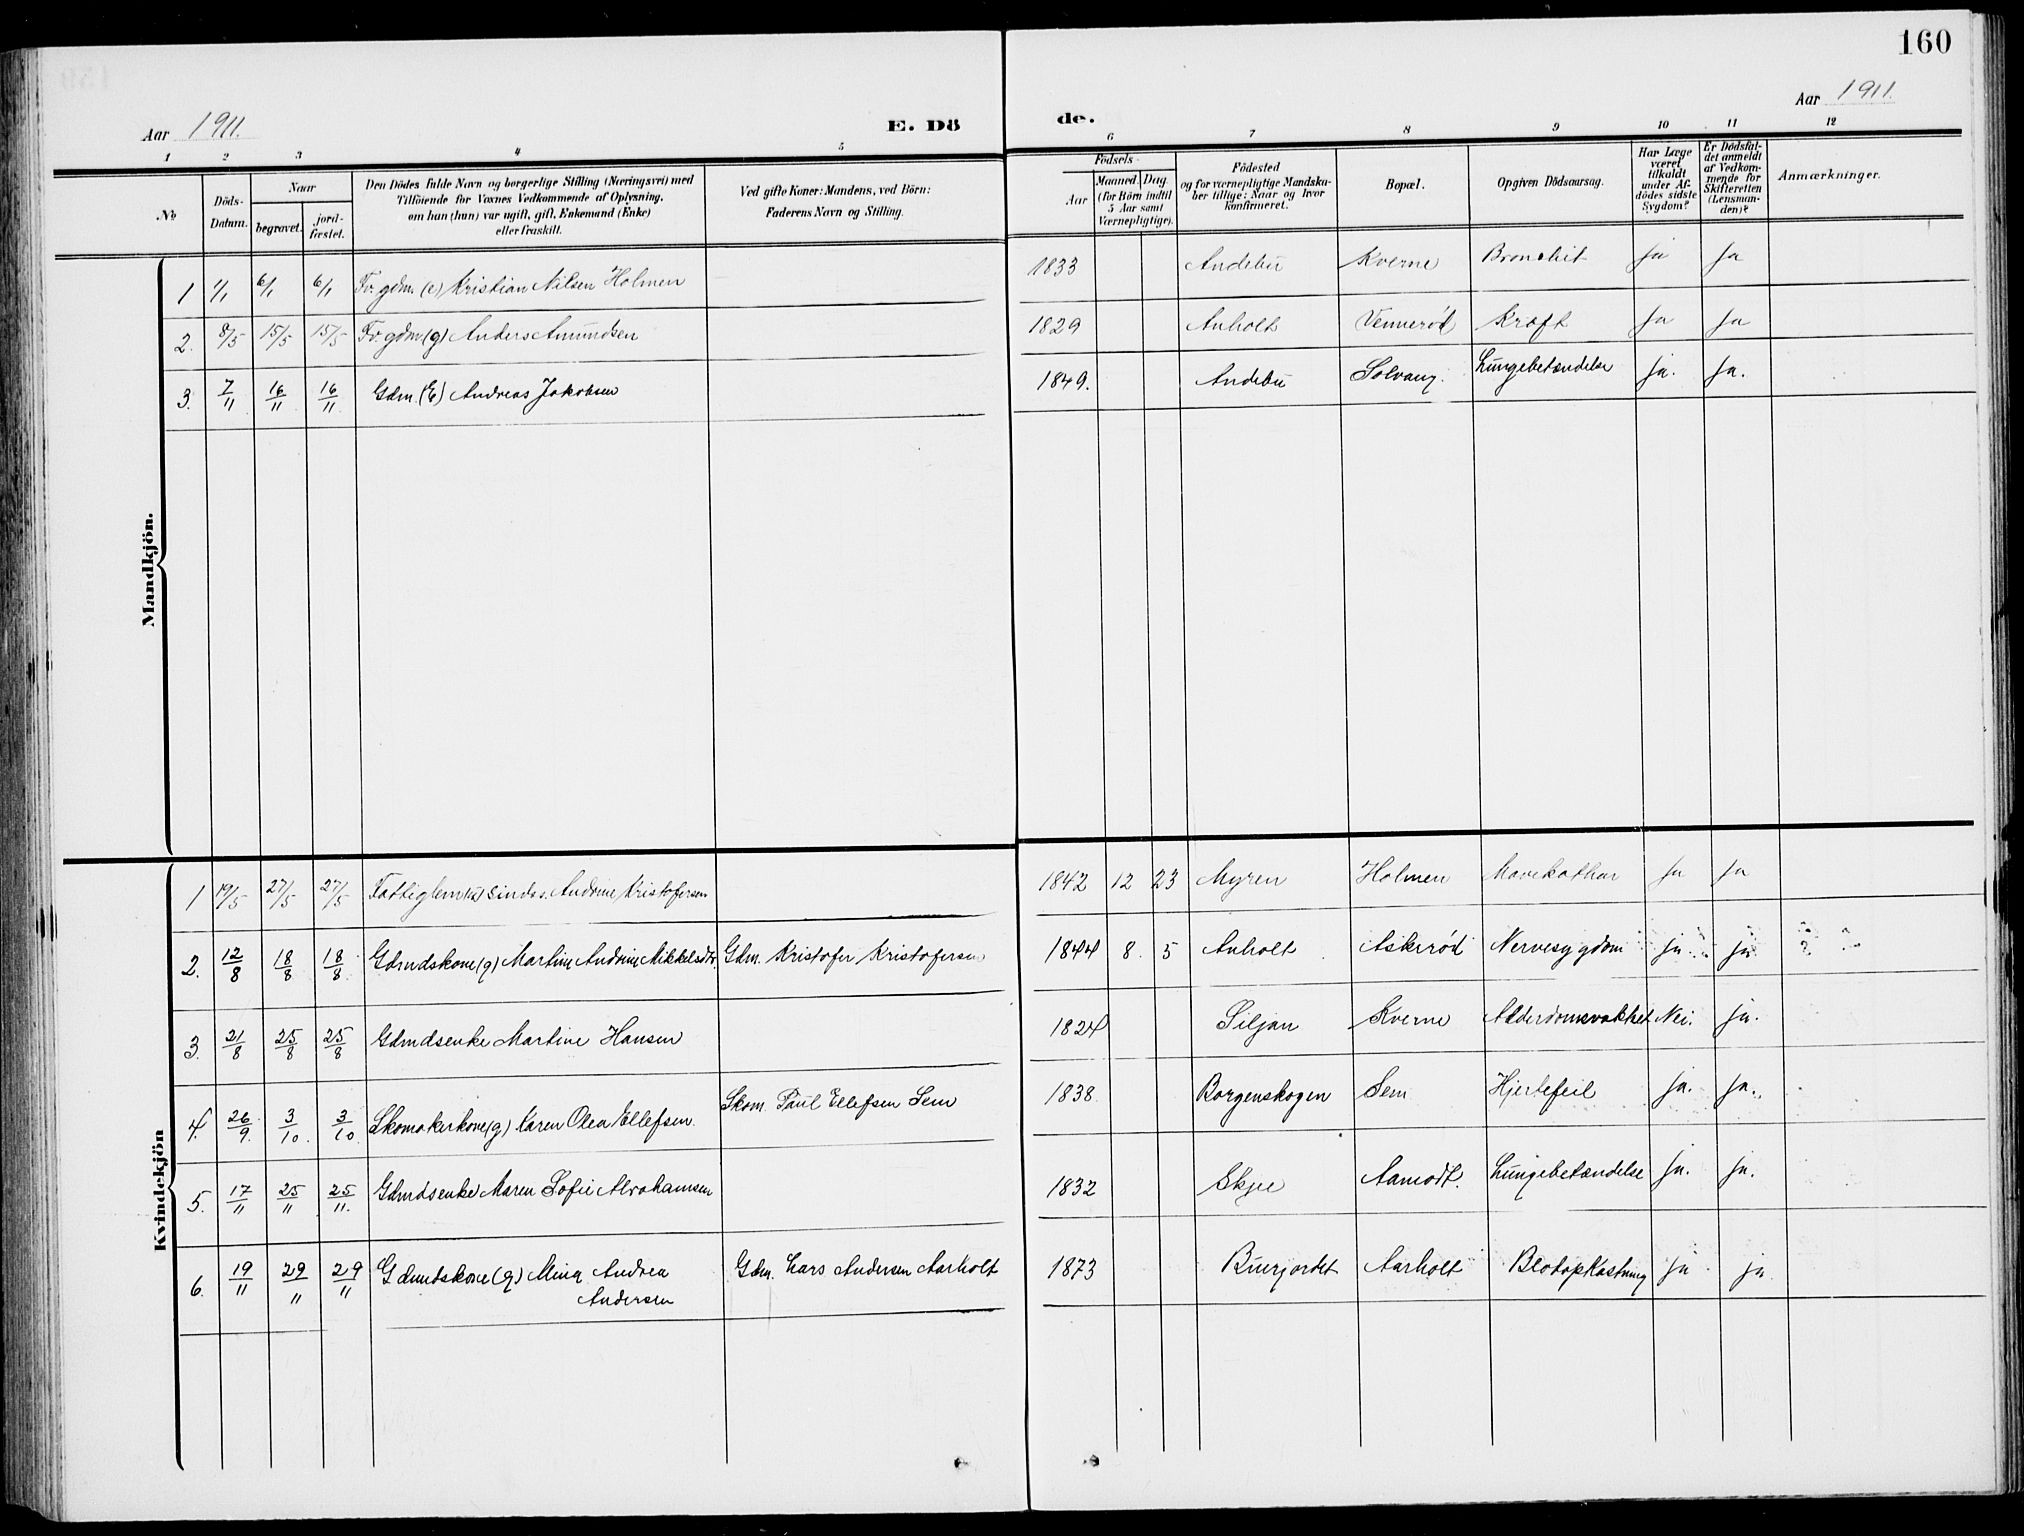 160
Aar 1911.
E. Dö
de.
Aar 1911.
1 2 3 4 5 6 7 8 9 10 11 12
No
Döds-Datum.
Naar
begravet.
jord-fæstet.
Den Dödes fulde Navn og borgerlige Stilling (Næringsvei) med
Tilföiende for Voxnes Vedkommende af Oplysning,
om han (hun) var ugift, gift, Enkemand (Enke)
eller fraskilt.
Ved gifte Koner: Mandens, ved Börn:
Faderens Navn og Stilling.
Födsels-
Aar
Maaned. Dag.
(for Börn indtil
5 Aar samt
Værnepligtige).
Födested
og for værnepligtige Mandska-
ber tillige: Naar og hvor
konfirmeret.
Bopæl.
Opgiven Dödsaarsag.
Har Læge
været
tilkaldt
under Af-
dödes sidste
Sygdom?
Er Dödsfal-
det anmeldt
af Vedkom-
mende for
Skifteretten
(Lensman-
den)?
Anmærkninger.
Mandkjön.
1 1/1 6/1 6/1 Fv. gdm. (e) Kristian Nilsen Holmen 1833 Andebu Kverne Bronchit ja ja
2. 8/5 15/5 15/5 Fv. gdm (g) Anders Amundsen 1829 Anholt Vennerød Kræft ja ja
3. 7/11 16/11 16/11 Gdm. (E) Andreas Jakobsen 1849. Andebu Solvang. Lungebetændelse ja. ja.
Kvindekjön
1 19/5 27/5 27/5 Fattiglem Andrine Kristofersen 1842 12 23 Myren Holmen Mavekathar ja ja
2. 12/8 18/8 18/8 Gdmdskone (g) Martine Andrine Mikkelsdtr. Gdm. Kristofer Kristofersen 1844 8. 5 Anholt Askerød Nervesygdom ja ja
3. 21/8 25/8 25/8 Gdmdsenke Martine Hansen 1824 Siljan Kverne Alderdomsvakhet Nei. ja.
4. 26/9. 3/10. 3/10 Skomakerkone (g) Karen Olea Ellefsen. Skom. Paul Ellefsen Sem 1838. Borgenskogen Sem Hjertefeil ja. ja.
5. 17/11 25/11 25/11. Gdmdsenke Maren Sofie Abrahamsen 1832 Skjee Aamodt. Lungebetændelse ja. ja.
6. 19/11 29/11 29/11 Gdmdskone (g) Mina Andrea
Andersen Gdm. Lars Andersen Aarholt 1873 Buerjordet Aarholt Blodopkastning ja ja